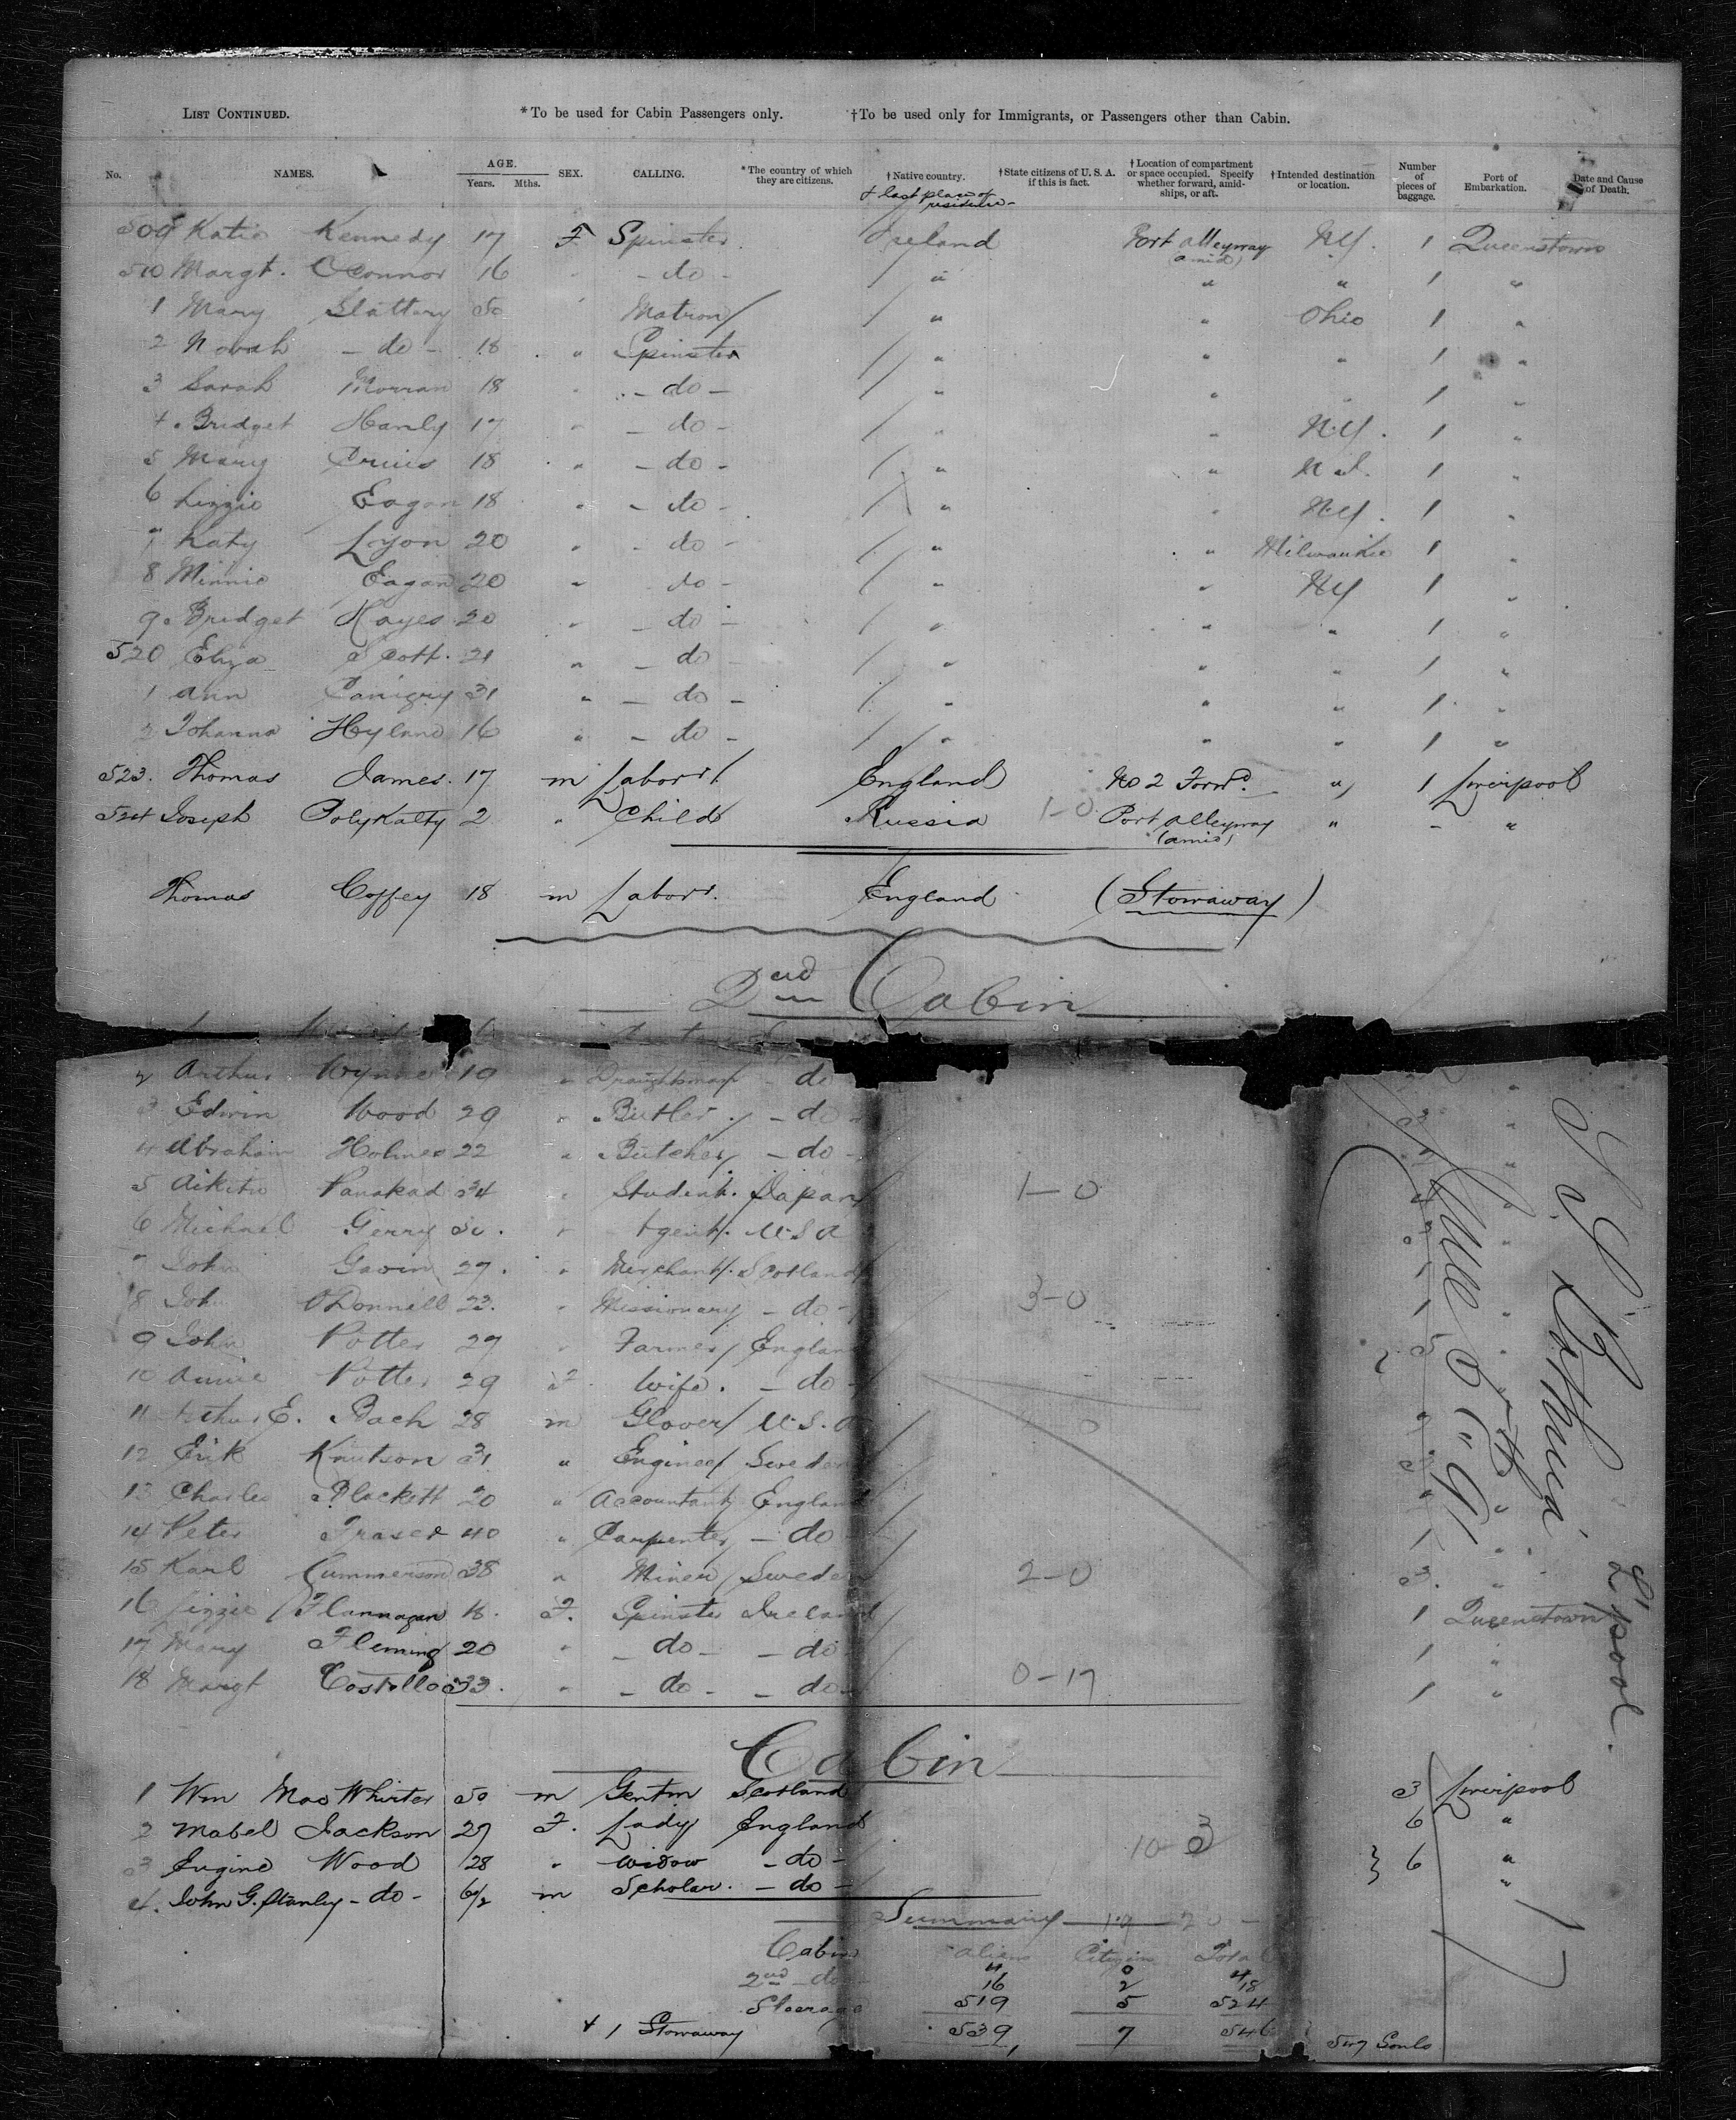 LIST CONTINUED. *To be used for Cabin Passengers only. †To be used only for Immigrants, or Passengers other than Cabin.
No. NAMES. AGE. Years. Mths. SEX. CALLING. *The country of which they are citizens. †Native country. & last place of residence †State citizens of U. S. A. if this is fact. †Location of compartment or space occupied. Specify whether forward, amidships, or aft. †Intended destination or location. Number of pieces of baggage. Port of Embarkation. Date and Cause of Death.
509 Katie Kennedy 17 F Spinster Ireland Port Alleyway (amid) N.Y. 1 Queenstown
510 Margt. OConnor 16 " - do - " " " 1 "
1 Mary Slattery 50 " Matron " " Ohio 1 "
2 Norah - do - 18 " Spinster " " " 1 "
3 Sarah Morran 18 " - do - " " " 1 "
4 Bridget Hanly 17 " - do - " " N.Y. 1 "
5 Mary 18 " - do - " " 1 "
6 Lizzie Eagan 18 " - do - " " N.Y. 1 "
7 Katy Lyon 20 " - do - " " Milwaukee 1 "
8 Minnie Eagan 20 " do - " " N.Y 1 "
9 Bridget Hayes 20 " - do - " " " 1 "
520 Eliza Scott 21 " - do - " " " 1 "
1 Ann 31 " - do - " " " 1 "
2 Johanna Hyland 16 " - do - " " " 1 "
523. Thomas James. 17 m Laborr England No 2 Forwd. " 1 Liverpool
524 Joseph Polykatty 2 " Child Russia 1-0 Port Alleyway (amid) " - "
Thomas Coffey 18 m Laborr. England (Stowaway)
2nd Cabin
2 Arthur Wynne 19 " Draughtsman - do
3 Edwin Wood 29 " Butler - do - 3 "
4 Abraham Holmes 22 " Butcher - do -
5 Aikitu Panakad 34 " Student. Japan 1-0
6 Michael Gerry 50. " Agent. U.S.A
7 John Gavin 27. " Merchant. Scotland 1
8 John O'Donnell 23. " Missionary - do - 3-0 1 "
9 John Potter 27 " Farmer England 5 "
10 Annie Potter 29 F Wife. - do -
11 Arthur E. Bach 28 m Glover U.S.A
12 Erik Knutson 31 " Engineer Sweden
13 Charles Plackett 20 " Accountant England
14 Peter Fraser 40 " Carpenter - do 1 "
15 Karl Cummerson 38 " Miner Sweden 2-0 3. "
16 Lizzie Flannagan 18. F. Spinster Ireland 1 Queenstown
17 Mary Fleming 20 " - do - - do 1 "
18 Margt Costello 33. " - do - - do - 0-17 1 "
S.S. Bothnia L'pool.
June 6th "91
Cabin
1 Wm MacWhirter 50 m Gentm Scotland 3 Liverpool
2 Mabel Jackson 27 F. Lady England 6 "
3 Eugine Wood 28 " Widow - do - 10-3 } 6 "
4. John G. Stanley - do - 6/2 m Scholar. - do - "
Summary
Aliens Citizen Total
Cabin 4 0 4
2nd - do - 16 2 18
Steerage 519 5 524
+ 1 Stowaway 539 7 546 547 Souls
17